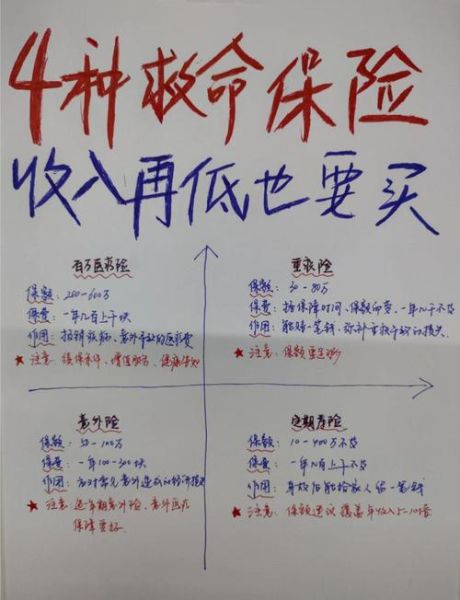 4种救命保险
收入再低也要买
百万医疗险
保额：200-600万
保费：一年几百上千块
作用：报销疾病、意外导致的医疗费
★ 注意：续保条件、增值服务、健康告知
重疾险
保额：30-80万
保费：按保障时间、保额而费，一年几千不等
作用：能赔一笔钱，弥补重疾导致的损失
★ 注意：保额要足够
意外险
保额：50-100万
保费：一年100-300块
作用：应对常见意外造成的经济损失
★ 注意：选一年期意外险、意外医疗
保障要好
定期寿险
保额：10-400万不等
保费：一年几百上千不等
作用：身故后能给家人留一笔钱
★ 注意：保额建议覆盖年收入5-10倍